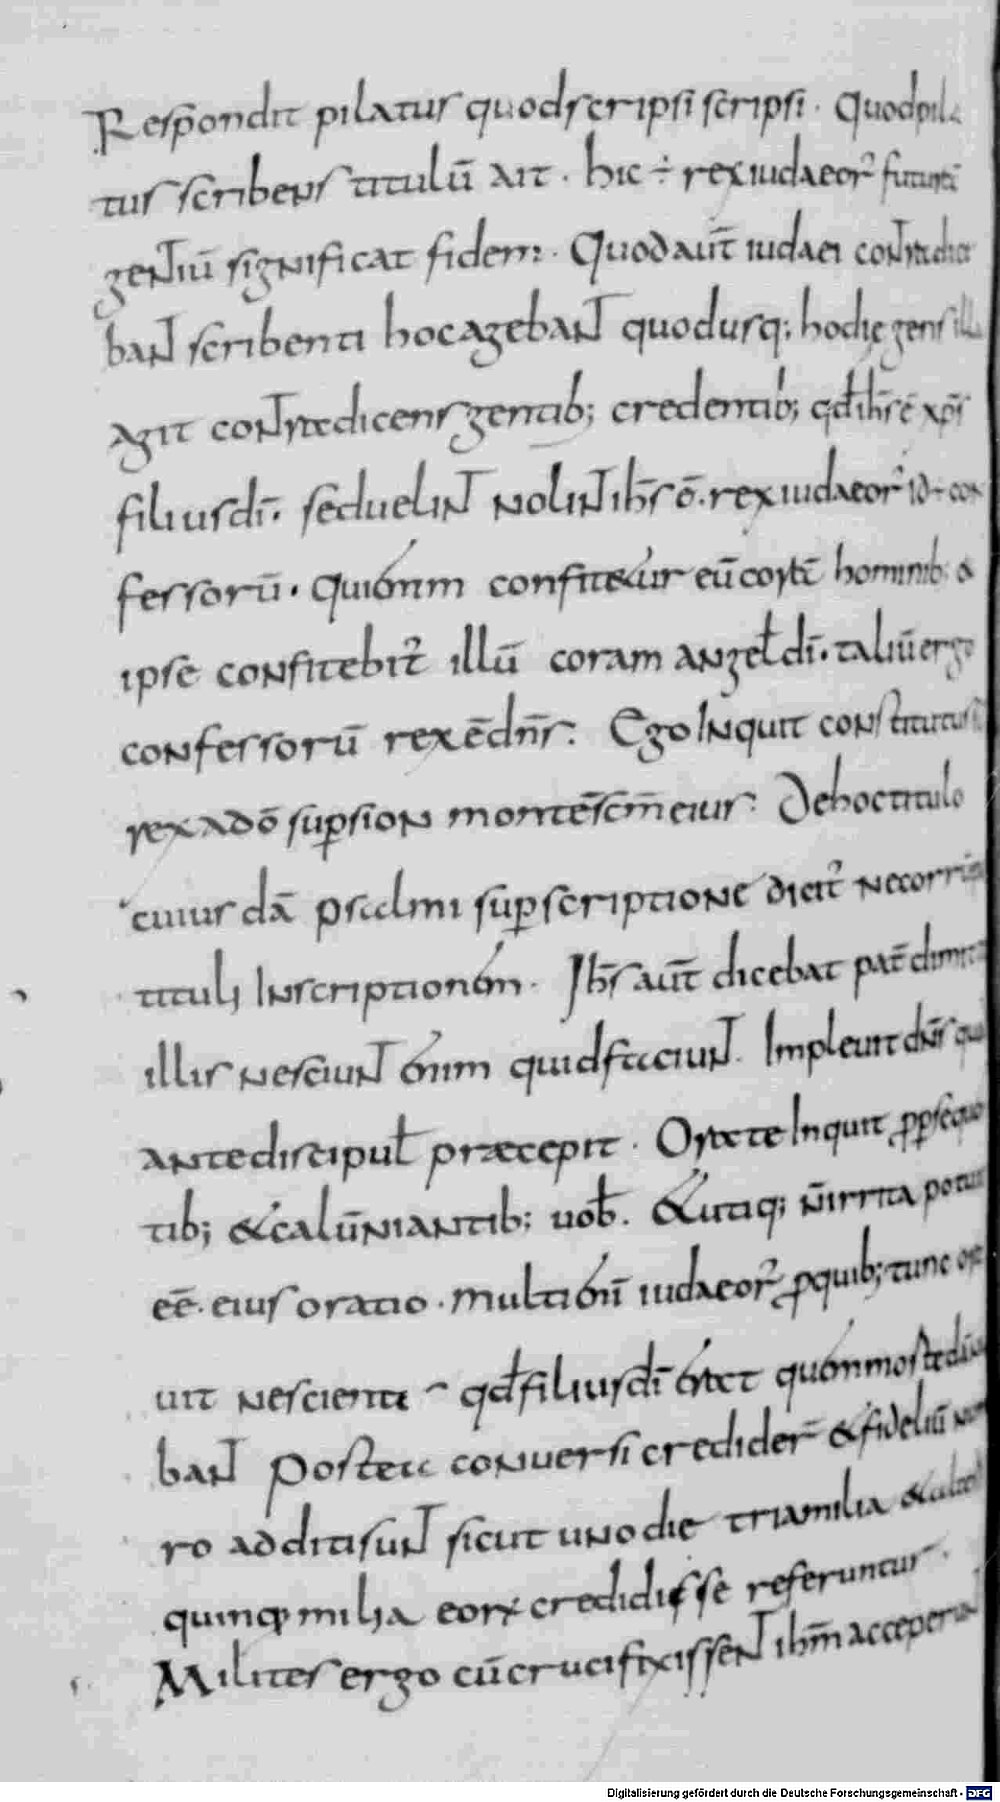 Respondit pilatus quod scripsi scripsi. Quod pila
tus scribens titulū ait. hic ÷ rex iudaeor̄ futurā
gentiū significat fidem. Quod aut̄ iudaei contradice
bant scribenti hoc agebant quod usq; hodie gens illa
agit contradicens gentib; credentib; qđ ih̄s ē xp̄s
filius dī. sed uelint nolint ih̄s ē rex iudaeor̄ id ÷ con
fessorū. Qui enim confitetur eū corā hominib; &
ipse confitebit̄ illū coram angeł dī. taliū ergo
confessorū rex ē dn̄s. Ego Inquit constitutus sū
rex ab eo sup sion montē scm̄ eius. De hoc titulo
cuiusdā psalmi sup scriptione dicit̄ ne corrūpas
tituli Inscriptionem. Ih̄s aut̄ dicebat pat̄ dimitte
illis nesciunt enim quid faciunt. Impleuit dn̄s quod
ante discipuł praecepit. Orate Inquit p psequen
tib; & calūniantib; uob̄. & utiq; n̄ irrita potuit
eē. eius oratio. multi enī iudaeor̄ p quib; tunc ora
uit nescientes qđ filius dī esset quem morte da
bant postea conuersi credidert̄ & fideliū nume
ro additi sunt sicut uno die tria milia & alio
quinq; milia eorū credidisse referuntur.
Milites ergo cū crucifixissent ih̄m acceperunt